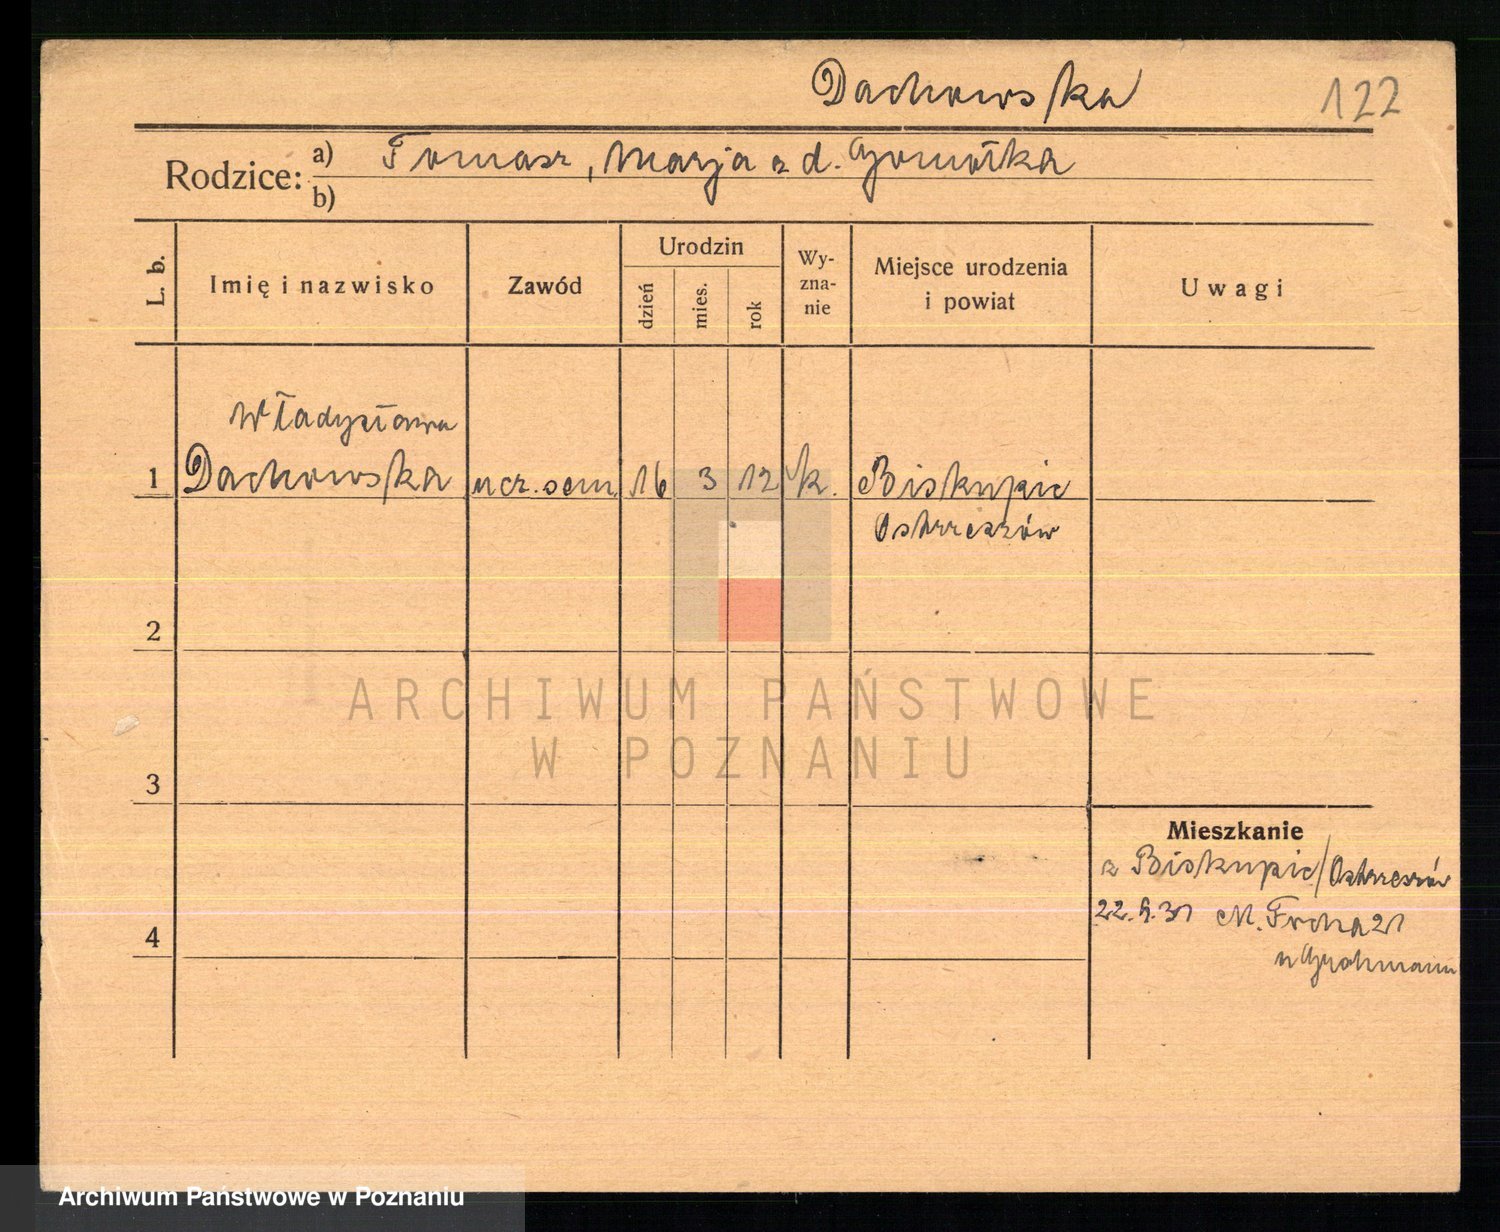 Dachowska 122
Rodzice: a) Tomasz, Marja z d. Gomółka
b)
L. b. Imię i nazwisko Zawód Urodzin dzień mies. rok Wy-zna-nie Miejsce urodzenia i powiat Uwagi
Władysława
1 Dachowska ucz. sem. 16 3 12 k. Biskupic
Ostrzeszów
2
ARCHIWUM PAŃSTWOWE
W POZNANIU
3
Mieszkanie
z Biskupic/Ostrzeszów
22. 9. 31 M. Focha 21
4
u Grohmann
Archiwum Państwowe w Poznaniu